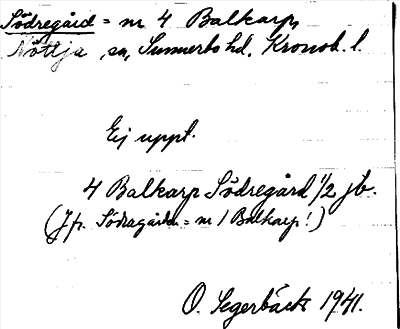 Södregård = nr 4 Balkarp,
Nöttja sn, Sunnerbo hd. Kronob. l.
Ej uppt.
4 Balkarp Södregård 1/2 jb.
(Jfr. Södragård = nr 1 Balkarp!)
O. Segerbäck 1941.